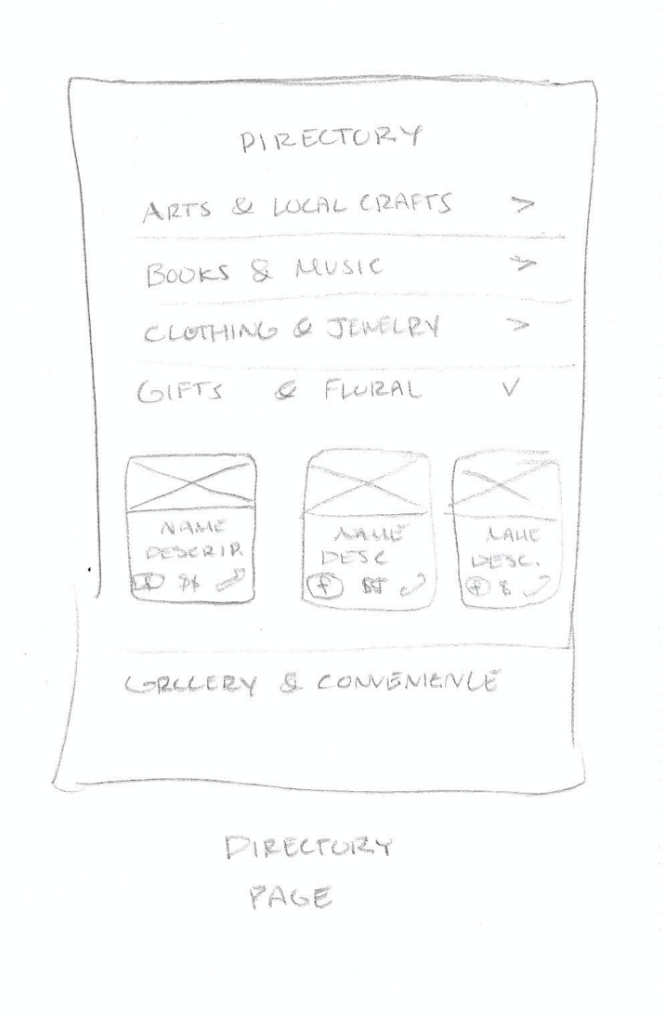 DIRECTORY
ARTS & LOCAL CRAFTS >
BOOKS & MUSIC >
CLOTHING & JEWELRY >
GIFTS & FLORAL V
NAME
DESCRIP.
f $$
NAME
DESC
f $$
NAME
DESC.
f $
GROCERY & CONVENIENCE
DIRECTORY
PAGE